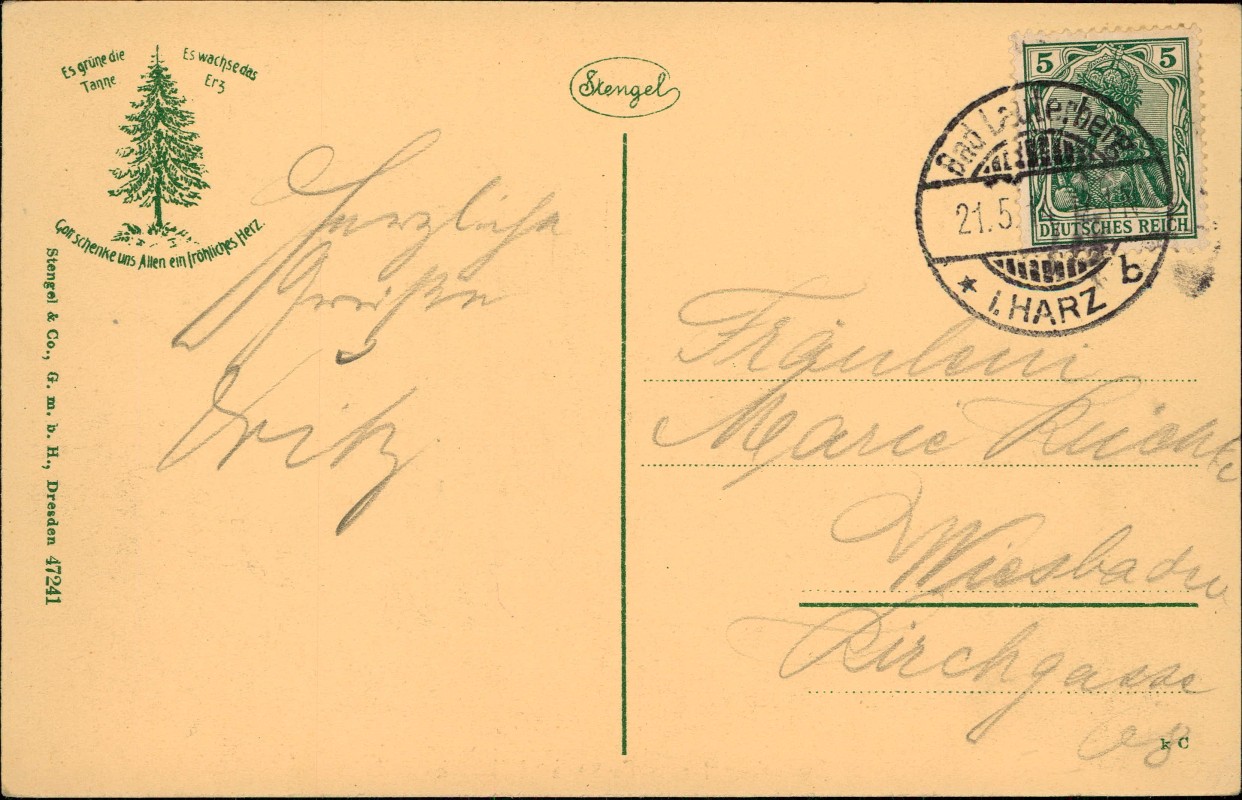 Es grüne die
Tanne
Es wachse das
Erz
Gott schenke uns Allen ein fröhliches Herz.
Stengel & Co., G. m. b. H., Dresden 47241
Stengel
Herzliche
Grüße
Fritz
5 5
DEUTSCHES REICH
Bad Lauterberg
21.5.
* i. HARZ b
Fräulein
Marie
Wiesbaden
Kirchgasse
k C